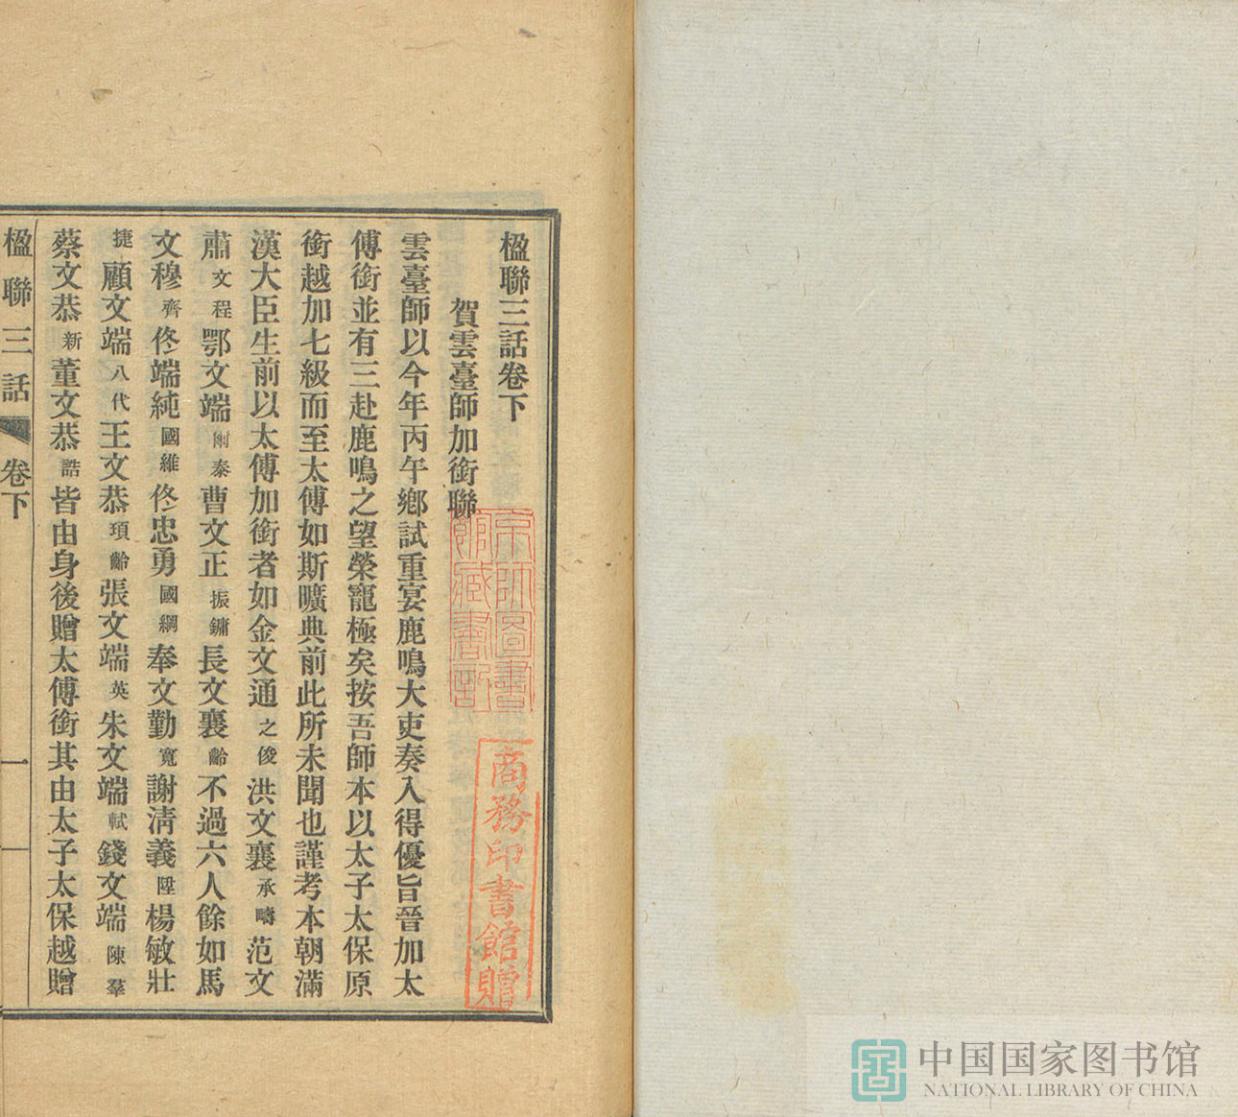 楹聯三話卷下
賀雲臺師加銜聯
雲臺師以今年丙午鄉試重宴鹿鳴大吏奏入得優旨晉加太
傅銜並有三赴鹿鳴之望榮寵極矣按吾師本以太子太保原
銜越加七級而至太傅如斯曠典前此所未聞也謹考本朝滿
漢大臣生前以太傅加銜者如金文通之俊洪文襄承疇范文
肅文程鄂文端爾泰曹文正振鏞長文襄齡不過六人餘如馬
文穆齊佟端純國維佟忠勇國綱奉文勤寬謝清義陞楊敏壯
捷顧文端八代王文恭頊齡張文端英朱文端軾錢文端陳羣
蔡文恭新董文恭誥皆由身後贈太傅銜其由太子太保越贈
楹聯三話
卷下
一
京師圖書館藏書記
商務印書館贈
中国国家图书馆
NATIONAL LIBRARY OF CHINA